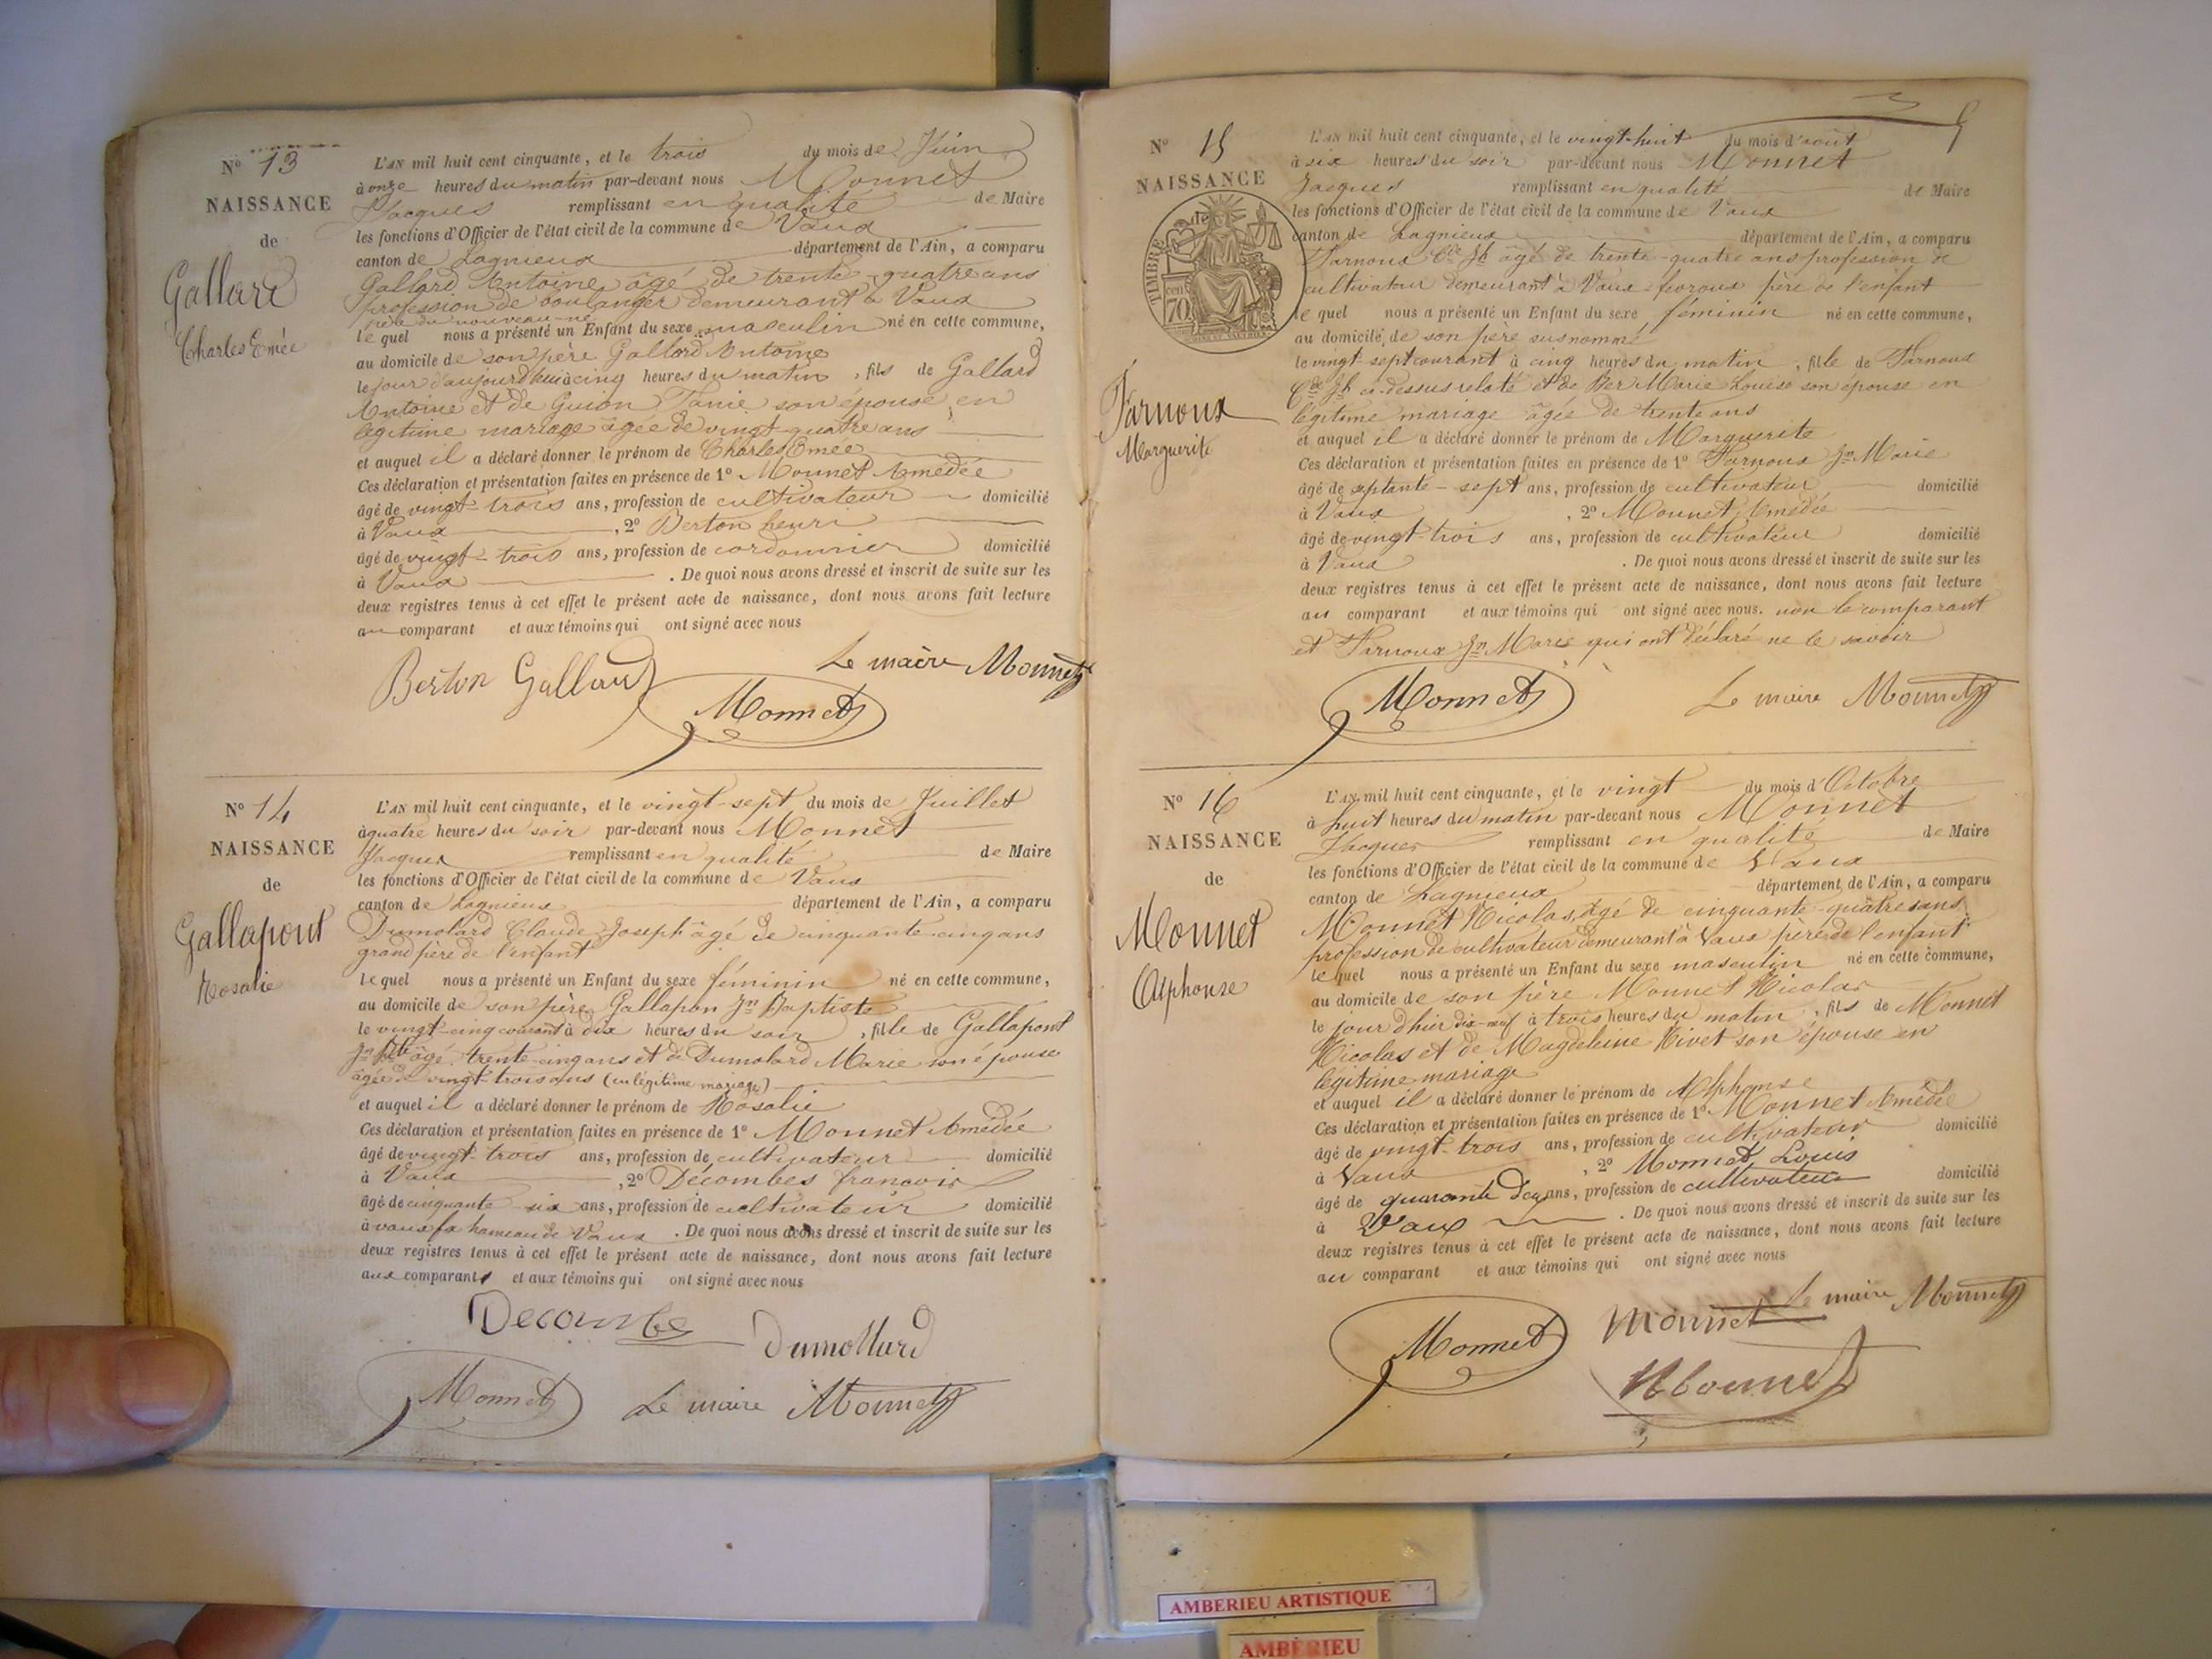 N° 13
NAISSANCE
de
Gallard
Charles Emée
L'AN mil huit cent cinquante, et le trois du mois de Juin
à onze heures du matin par-devant nous Monnet
Jacques remplissant en qualité de Maire
les fonctions d'Officier de l'état civil de la commune de Vaux
canton de Lagnieux département de l'Ain, a comparu
Gallard Antoine âgé de trente-quatre ans
profession de boulanger demeurant à Vaux
père du nouveau-né
lequel nous a présenté un Enfant du sexe masculin né en cette commune,
au domicile de son père Gallard Antoine
le jour d'aujourd'hui à cinq heures du matin, fils de Gallard
Antoine et de Guion son épouse en
légitime mariage âgée de vingt-quatre ans
et auquel il a déclaré donner le prénom de Charles Emée
Ces déclaration et présentation faites en présence de 1° Monnet Amédée
âgé de vingt-trois ans, profession de cultivateur domicilié
à Vaux, 2° Berton henri
âgé de vingt-trois ans, profession de cordonnier domicilié
à Vaux. De quoi nous avons dressé et inscrit de suite sur les
deux registres tenus à cet effet le présent acte de naissance, dont nous avons fait lecture
au comparant et aux témoins qui ont signé avec nous
Berton Gallard Le maire Monnet
Monnet
N° 14
NAISSANCE
de
Gallapont
Rosalie
L'AN mil huit cent cinquante, et le vingt-sept du mois de Juillet
à quatre heures du soir par-devant nous Monnet
Jacques remplissant en qualité de Maire
les fonctions d'Officier de l'état civil de la commune de Vaux
canton de Lagnieux département de l'Ain, a comparu
Dumolard Claude Joseph âgé de cinquante-cinq ans
grand père de l'enfant
lequel nous a présenté un Enfant du sexe féminin né en cette commune,
au domicile de son père Gallapon Jn Baptiste
le vingt-cinq courant à dix heures du soir, fille de Gallapont
Jn Bte âgé trente-cinq ans et de Dumolard Marie son épouse
âgée de vingt-trois ans (en légitime mariage)
et auquel il a déclaré donner le prénom de Rosalie
Ces déclaration et présentation faites en présence de 1° Monnet Amédée
âgé de vingt-trois ans, profession de cultivateur domicilié
à Vaux, 2° Décombes francois
âgé de cinquante-six ans, profession de cultivateur domicilié
à hameau de Vaux. De quoi nous avons dressé et inscrit de suite sur les
deux registres tenus à cet effet le présent acte de naissance, dont nous avons fait lecture
aux comparants et aux témoins qui ont signé avec nous
Decombe Dumollard
Monnet Le maire Monnet
5
N° 15
NAISSANCE
de
TIMBRE
cen 70
Farnoux
Marguerite
L'AN mil huit cent cinquante, et le vingt-huit du mois d'août
à six heures du soir par-devant nous Monnet
Jacques remplissant en qualité de Maire
les fonctions d'Officier de l'état civil de la commune de Vaux
canton de Lagnieux département de l'Ain, a comparu
Farnoux Cde Jh âgé de trente-quatre ans profession de
cultivateur demeurant à Vaux père de l'enfant
lequel nous a présenté un Enfant du sexe féminin né en cette commune,
au domicile de son père susnommé
le vingt-sept courant à cinq heures du matin, fille de Farnoux
Cde Jh ci-dessus relaté et de Ber Marie Louise son épouse en
légitime mariage âgée de trente ans
et auquel il a déclaré donner le prénom de Marguerite
Ces déclaration et présentation faites en présence de 1° Farnoux Jn Marie
âgé de septante-sept ans, profession de cultivateur domicilié
à Vaux, 2° Monnet Amédée
âgé de vingt-trois ans, profession de cultivateur domicilié
à Vaux. De quoi nous avons dressé et inscrit de suite sur les
deux registres tenus à cet effet le présent acte de naissance, dont nous avons fait lecture
au comparant et aux témoins qui ont signé avec nous. non le comparant
et Farnoux Jn Marie qui ont déclaré ne le savoir
Monnet Le maire Monnet
N° 16
NAISSANCE
de
Monnet
Alphonse
L'AN mil huit cent cinquante, et le vingt du mois d'Octobre
à huit heures du matin par-devant nous Monnet
Jacques remplissant en qualité de Maire
les fonctions d'Officier de l'état civil de la commune de Vaux
canton de Lagnieux département de l'Ain, a comparu
Monnet Nicolas, âgé de cinquante-quatre ans
profession de cultivateur demeurant à Vaux père de l'enfant
lequel nous a présenté un Enfant du sexe masculin né en cette commune,
au domicile de son père Monnet Nicolas
le jour d'hier dix-neuf à trois heures du matin, fils de Monnet
Nicolas et de Magdeleine Nivet son épouse en
légitime mariage
et auquel il a déclaré donner le prénom de Alphonse
Ces déclaration et présentation faites en présence de 1° Monnet Amédée
âgé de vingt-trois ans, profession de cultivateur domicilié
à Vaux, 2° Monnet Louis
âgé de quarante ans, profession de cultivateur domicilié
à Vaux. De quoi nous avons dressé et inscrit de suite sur les
deux registres tenus à cet effet le présent acte de naissance, dont nous avons fait lecture
au comparant et aux témoins qui ont signé avec nous
Le maire Monnet
Monnet Monnet
Monnet
AMBERIEU ARTISTIQUE
AMBÉRIEU